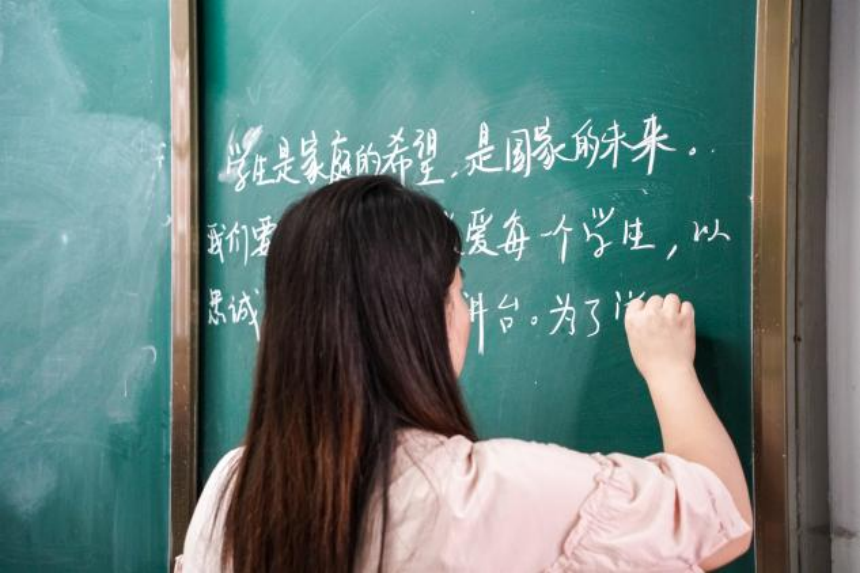 学生是家庭的希望，是国家的未来。
我们要爱每一个学生，以
忠诚讲台。为了